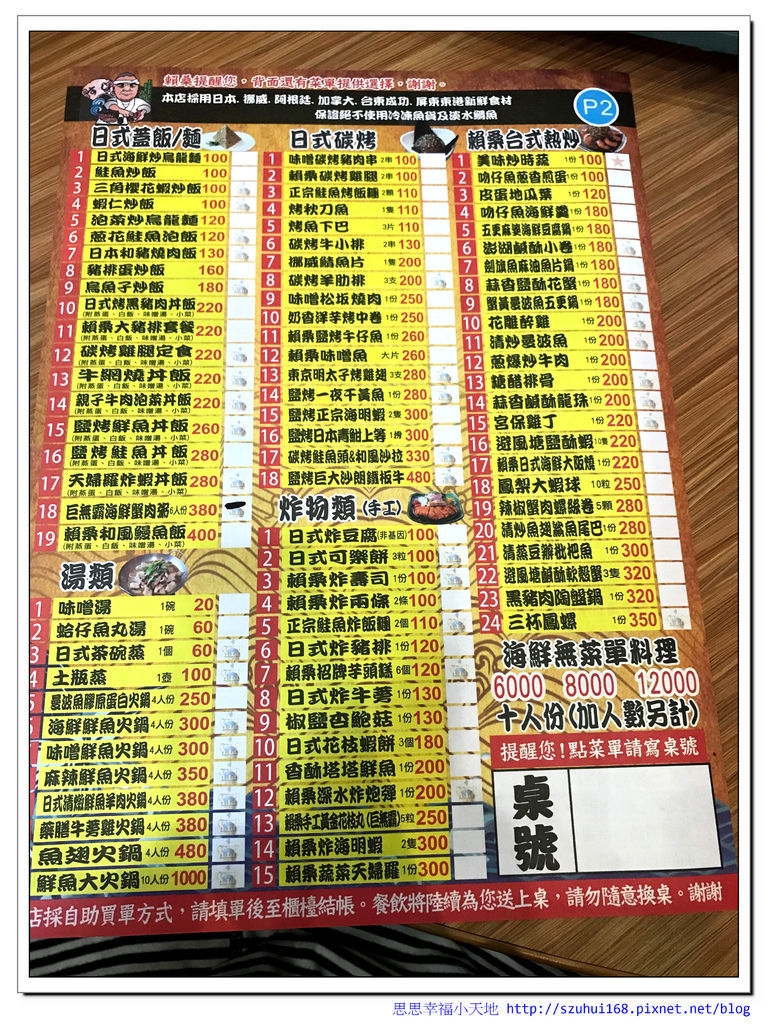 賴桑提醒您，背面還有菜單提供選擇，謝謝。
本店採用日本. 挪威. 阿根廷. 加拿大. 台東成功. 屏東東港新鮮食材
保證絕不使用冷凍魚貨及淡水鯛魚
P2
日式蓋飯/麵
1 日式海鮮炒烏龍麵 100
2 鮭魚炒飯 100
3 三角櫻花蝦炒飯 100
4 蝦仁炒飯 100
5 泡菜炒烏龍麵 120
6 蔥花鮭魚泡飯 120
7 日本和豬燒肉飯 130
8 豬排蛋炒飯 160
9 烏魚子炒飯 180
10 日式烤黑豬肉丼飯 220
(附蒸蛋、白飯、味噌湯、小菜)
11 賴桑大豬排套餐 220
(附蒸蛋、白飯、味噌湯、小菜)
12 碳烤雞腿定食 220
(附蒸蛋、白飯、味噌湯、小菜)
13 牛網燒丼飯 220
(附蒸蛋、白飯、味噌湯、小菜)
14 親子牛肉泡菜丼飯 220
(附蒸蛋、白飯、味噌湯、小菜)
15 鹽烤鮮魚丼飯 260
(附蒸蛋、白飯、味噌湯、小菜)
16 鹽烤鮭魚丼飯 280
(附蒸蛋、白飯、味噌湯、小菜)
17 天婦羅炸蝦丼飯 280
(附蒸蛋、白飯、味噌湯、小菜)
18 巨無霸海鮮蟹肉粥 6人份 380
19 賴桑和風鰻魚飯 400
(附蒸蛋、白飯、味噌湯、小菜)
湯類
1 味噌湯 1碗 20
2 蛤仔魚丸湯 1碗 60
3 日式茶碗蒸 1個 60
4 土瓶蒸 1壺 100
5 曼波魚膠原蛋白火鍋 4人份 250
海鮮鮮魚火鍋 4人份 300
味噌鮮魚火鍋 4人份 300
麻辣鮮魚火鍋 4人份 350
日式清燉鮮魚羊肉火鍋 4人份 380
藥膳牛蒡雞火鍋 4人份 380
魚翅火鍋 4人份 480
鮮魚大火鍋 10人份 1000
日式碳烤
1 味噌碳烤豬肉串 2串 100
2 賴桑碳烤雞腿 2串 100
3 正宗鮭魚烤飯糰 2顆 110
4 烤秋刀魚 1隻 110
5 烤魚下巴 3片 110
6 碳烤牛小排 2串 130
7 挪威鯖魚片 1隻 200
8 碳烤羊肋排 3支 200
9 味噌松坂燒肉 1份 250
10 奶香洋芋烤中卷 1份 250
11 賴桑鹽烤牛仔魚 1份 260
12 賴桑味噌魚 大片 260
13 東京明太子烤雞翅 3支 280
14 鹽烤一夜干黃魚 1份 280
15 鹽烤正宗海明蝦 2隻 300
16 鹽烤日本青魽上等 1份 300
17 碳烤鮭魚頭&和風沙拉 330
18 鹽烤巨大沙朗鐵板牛 480
炸物類 (手工)
1 日式炸豆腐 (非基因) 100
2 日式可樂餅 3粒 100
3 賴桑炸壽司 1份 100
4 賴桑炸兩條 2條 100
5 正宗鮭魚炸飯糰 2個 110
6 日式炸豬排 1份 120
7 賴桑招牌芋頭糕 6個 120
8 日式炸牛蒡 1份 130
9 椒鹽杏鮑菇 1份 130
10 日式花枝蝦餅 3個 180
11 香酥塔塔鮮魚 1份 200
12 賴桑深水炸炮彈 1份 200
13 賴桑手工黃金花枝丸 (巨無霸) 5粒 250
14 賴桑炸海明蝦 2隻 300
15 賴桑蔬菜天婦羅 1份 300
賴桑台式熱炒
1 美味炒時蔬 1份 100
2 吻仔魚蔥香煎蛋 1份 100
3 皮蛋地瓜葉 1份 120
4 吻仔魚海鮮羹 1份 180
5 五更麻婆海鮮豆腐鍋 1份 180
6 澎湖鹹酥小卷 1份 180
7 劍旗魚麻油魚片鍋 1份 180
8 蒜香鹽酥花蟹 1份 180
9 蟹黃曼波魚五更鍋 1份 180
10 花雕醉雞 1份 200
11 清炒曼波魚 1份 200
12 蔥爆炒牛肉 1份 200
13 糖醋排骨 1份 200
14 蒜香鹹酥龍珠 1份 200
15 宮保雞丁 1份 220
16 避風塘鹽酥蝦 10隻 220
17 賴桑日式海鮮大阪燒 1份 220
18 鳳梨大蝦球 10粒 250
19 辣椒蟹肉螺絲卷 5顆 280
20 清炒魚翅鯊魚尾巴 1份 280
21 清蒸豆瓣枇杷魚 1份 300
22 避風塘鹹酥軟殼蟹 3隻 320
23 黑豬肉陶盤鍋 1份 320
24 三杯鳳螺 1份 350
海鮮無菜單料理
6000 8000 12000
十人份(加人數另計)
提醒您!點菜單請寫桌號
桌號
店採自助買單方式，請填單後至櫃檯結帳。餐飲將陸續為您送上桌，請勿隨意換桌。謝謝
思思幸福小天地 http://szuhui168.pixnet.net/blog